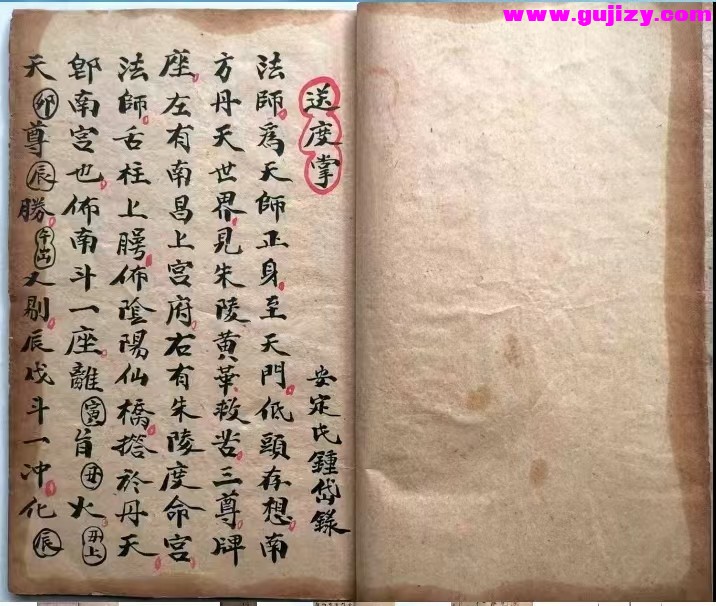 www.gujizy.com
送度掌
安定氏鍾岱錄
法師爲天師正身至天門低頭存想南
方丹天世界見朱陵黃華救苦三尊牌
座左有南昌上宮府右有朱陵度命宮
法師舌柱上腭佈陰陽仙橋搭於丹天
郵南宮也佈南斗一座離寅旨丑火丑上
天卯尊辰勝午出又剔辰戊斗一冲化辰